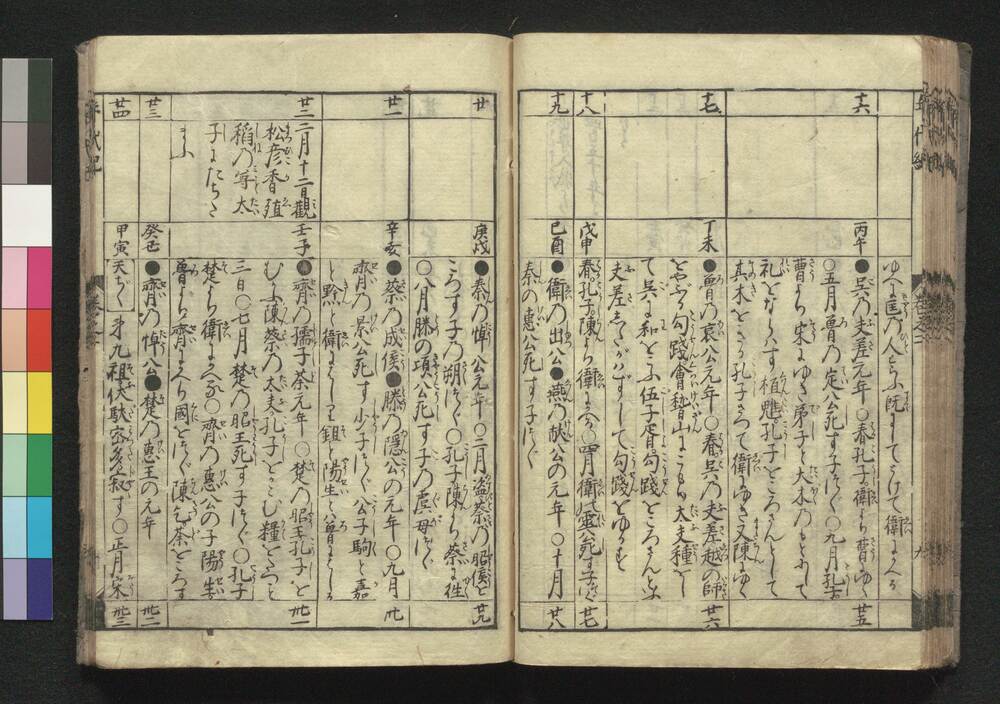 ゆく匡の人とらふ既にしてさけて衛にかへる
十六
丙午
●呉乃夫差元年○春孔子衛より曹にゆく
○五月魯乃定公死す子つぐ○九月孔子
曹より宋にゆき弟子と大木のもとにて
礼をならハす桓魋孔子をころさんとして
其木をきる孔子さつて衛にゆき又陳にゆく
廿五
十七
丁未
●魯乃哀公元年○春呉乃夫差越の師
をやぶる勾踐會稽山にこもる大夫種をし
て呉に和をこふ伍子胥勾踐をころさんといふ
夫差したがハずして勾踐をゆるす
廿六
十八
戊申
春孔子陳より衛にかへる○四月衛灵公死す子つぐ
廿七
十九
己酉
●衛の出公●燕乃献公の元年○十月
秦の惠公死す子つぐ
廿八
廿
庚戌
●秦乃悼公元年○二月盗蔡乃昭侯を
ころす子乃朔つぐ○孔子陳より蔡に往
○八月滕の頃公死す子の虞毋つぐ
廿九
廿一
辛亥
●蔡乃成侯●滕乃隱公の元年○九月
齊乃景公死す少子つぐ公子駒と嘉
と黔と衛にはしる鉏と陽生ハ魯にはしる
卅
廿二
二月十二日觀
松彦香殖
稲乃尊太
子にたちた
まふ
壬子
●齊乃孺子荼元年○楚乃昭王孔子を
むかふ陳蔡乃大夫孔子をかこむ糧をたつこと
三日○七月楚乃昭王死す子つぐ○孔子
楚より衛にかへる○齊乃惠公の子陽生
魯より齊にかへり國をつぐ陳乞荼をころす
卅一
廿三
癸丑
●齊乃悼公●楚乃惠王の元年
卅二
廿四
甲寅
天ぢく
第九祖伏駄宻多寂す○正月宋
卅三